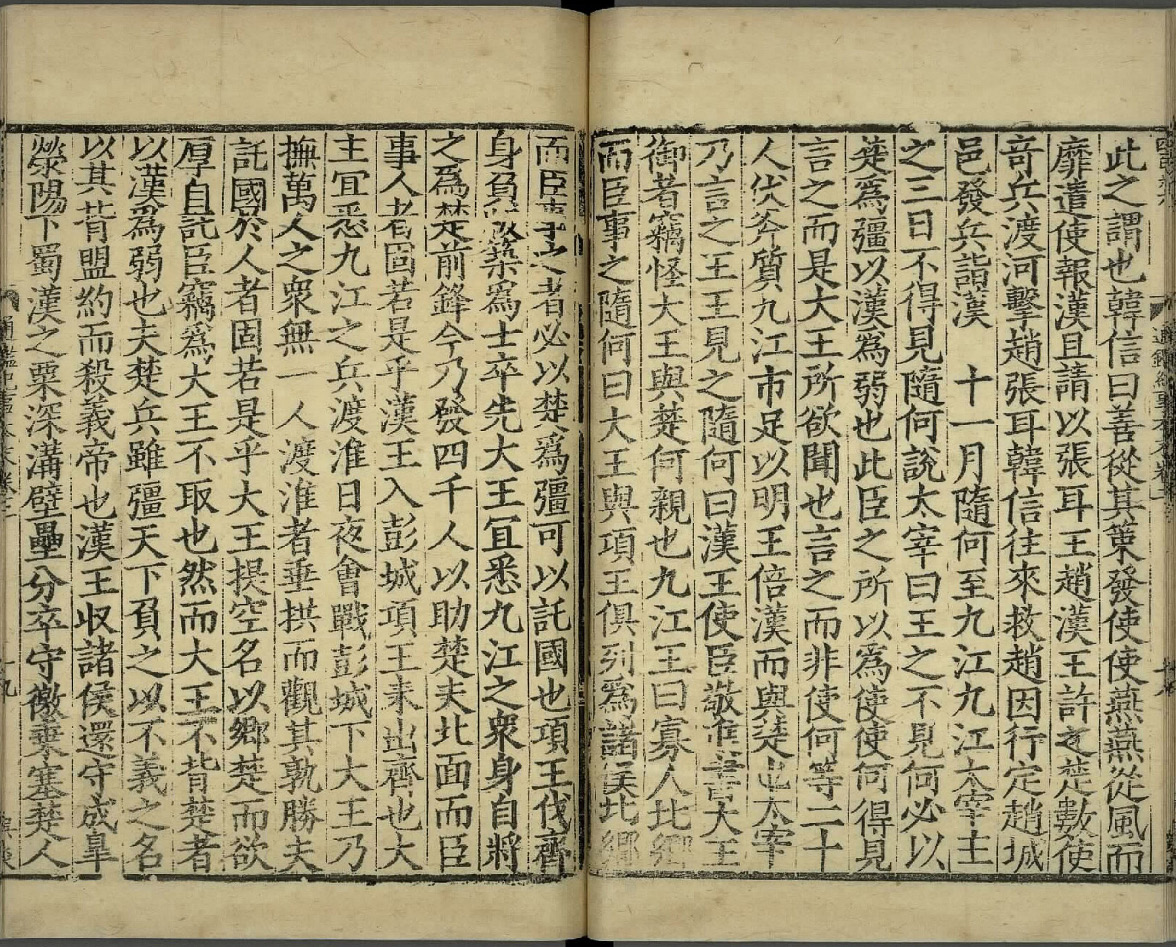 此之謂也韓信曰善從其策發使使燕燕從風而
靡遣使報漢且請以張耳王趙漢王許之楚數使
竒兵渡河擊趙張耳韓信往來救趙因行定趙城
邑發兵詣漢　十一月隨何至九江九江太宰主
之三日不得見隨何說太宰曰王之不見何必以
楚爲彊以漢爲弱也此臣之所以爲使使何得見
言之而是大王所欲聞也言之而非使何等二十
人伏斧質九江市足以明王倍漢而與楚也太宰
乃言之王王見之隨何曰漢王使臣敬進書大王
御者竊怪大王與楚何親也九江王曰寡人北鄉
而臣事之隨何曰大王與項王俱列爲諸侯北鄉
而臣事之者必以楚爲彊可以託國也項王伐齊
身負版築爲士卒先大王宜悉九江之衆身自將
之爲楚前鋒今乃發四千人以助楚夫北面而臣
事人者固若是乎漢王入彭城項王未出齊也大
王宜悉九江之兵渡淮日夜會戰彭城下大王乃
撫萬人之衆無一人渡淮者垂拱而觀其孰勝夫
託國於人者固若是乎大王提空名以鄉楚而欲
厚自託臣竊爲大王不取也然而大王不背楚者
以漢爲弱也夫楚兵雖彊天下負之以不義之名
以其背盟約而殺義帝也漢王收諸侯還守成皐
滎陽下蜀漢之粟深溝壁壘分卒守徼乗塞楚人